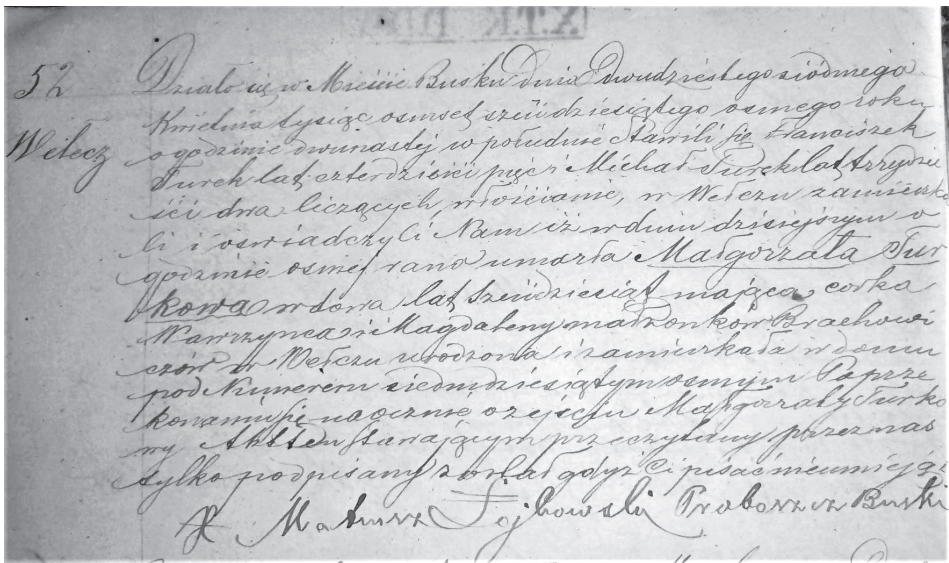 52
Wełecz
Działo się w Mieście Busku dnia Dwudziestego siódmego
Kwietnia tysiąc osmset sześćdziesiątego osmego roku
o godzinie dwunastej w południe Stawili się Franciszek
Turek lat czterdzieści pięć i Michał Turek lat trzydzie
ści dwa liczących, włościanie, w Wełczu zamieszk
li i oswiadczyli Nam iż w dniu dzisiejszym o
godzinie osmej rano umarła Małgorzata Tur
kowa wdowa lat sześćdziesiąt mająca, corka
Wawrzynca i Magdaleny małżonków Brachowi
czów w Wełczu urodzona i zamieszkała w domu
pod Numerem siedmdziesiątym osmym Poprze
konaniu się naocznie o zejściu Małgorzaty Turko
wy Akt ten stawającym przeczytany przez nas
tylko podpisany został gdyż Ci pisać nieumieją
X Mateusz Proboszcz Buski